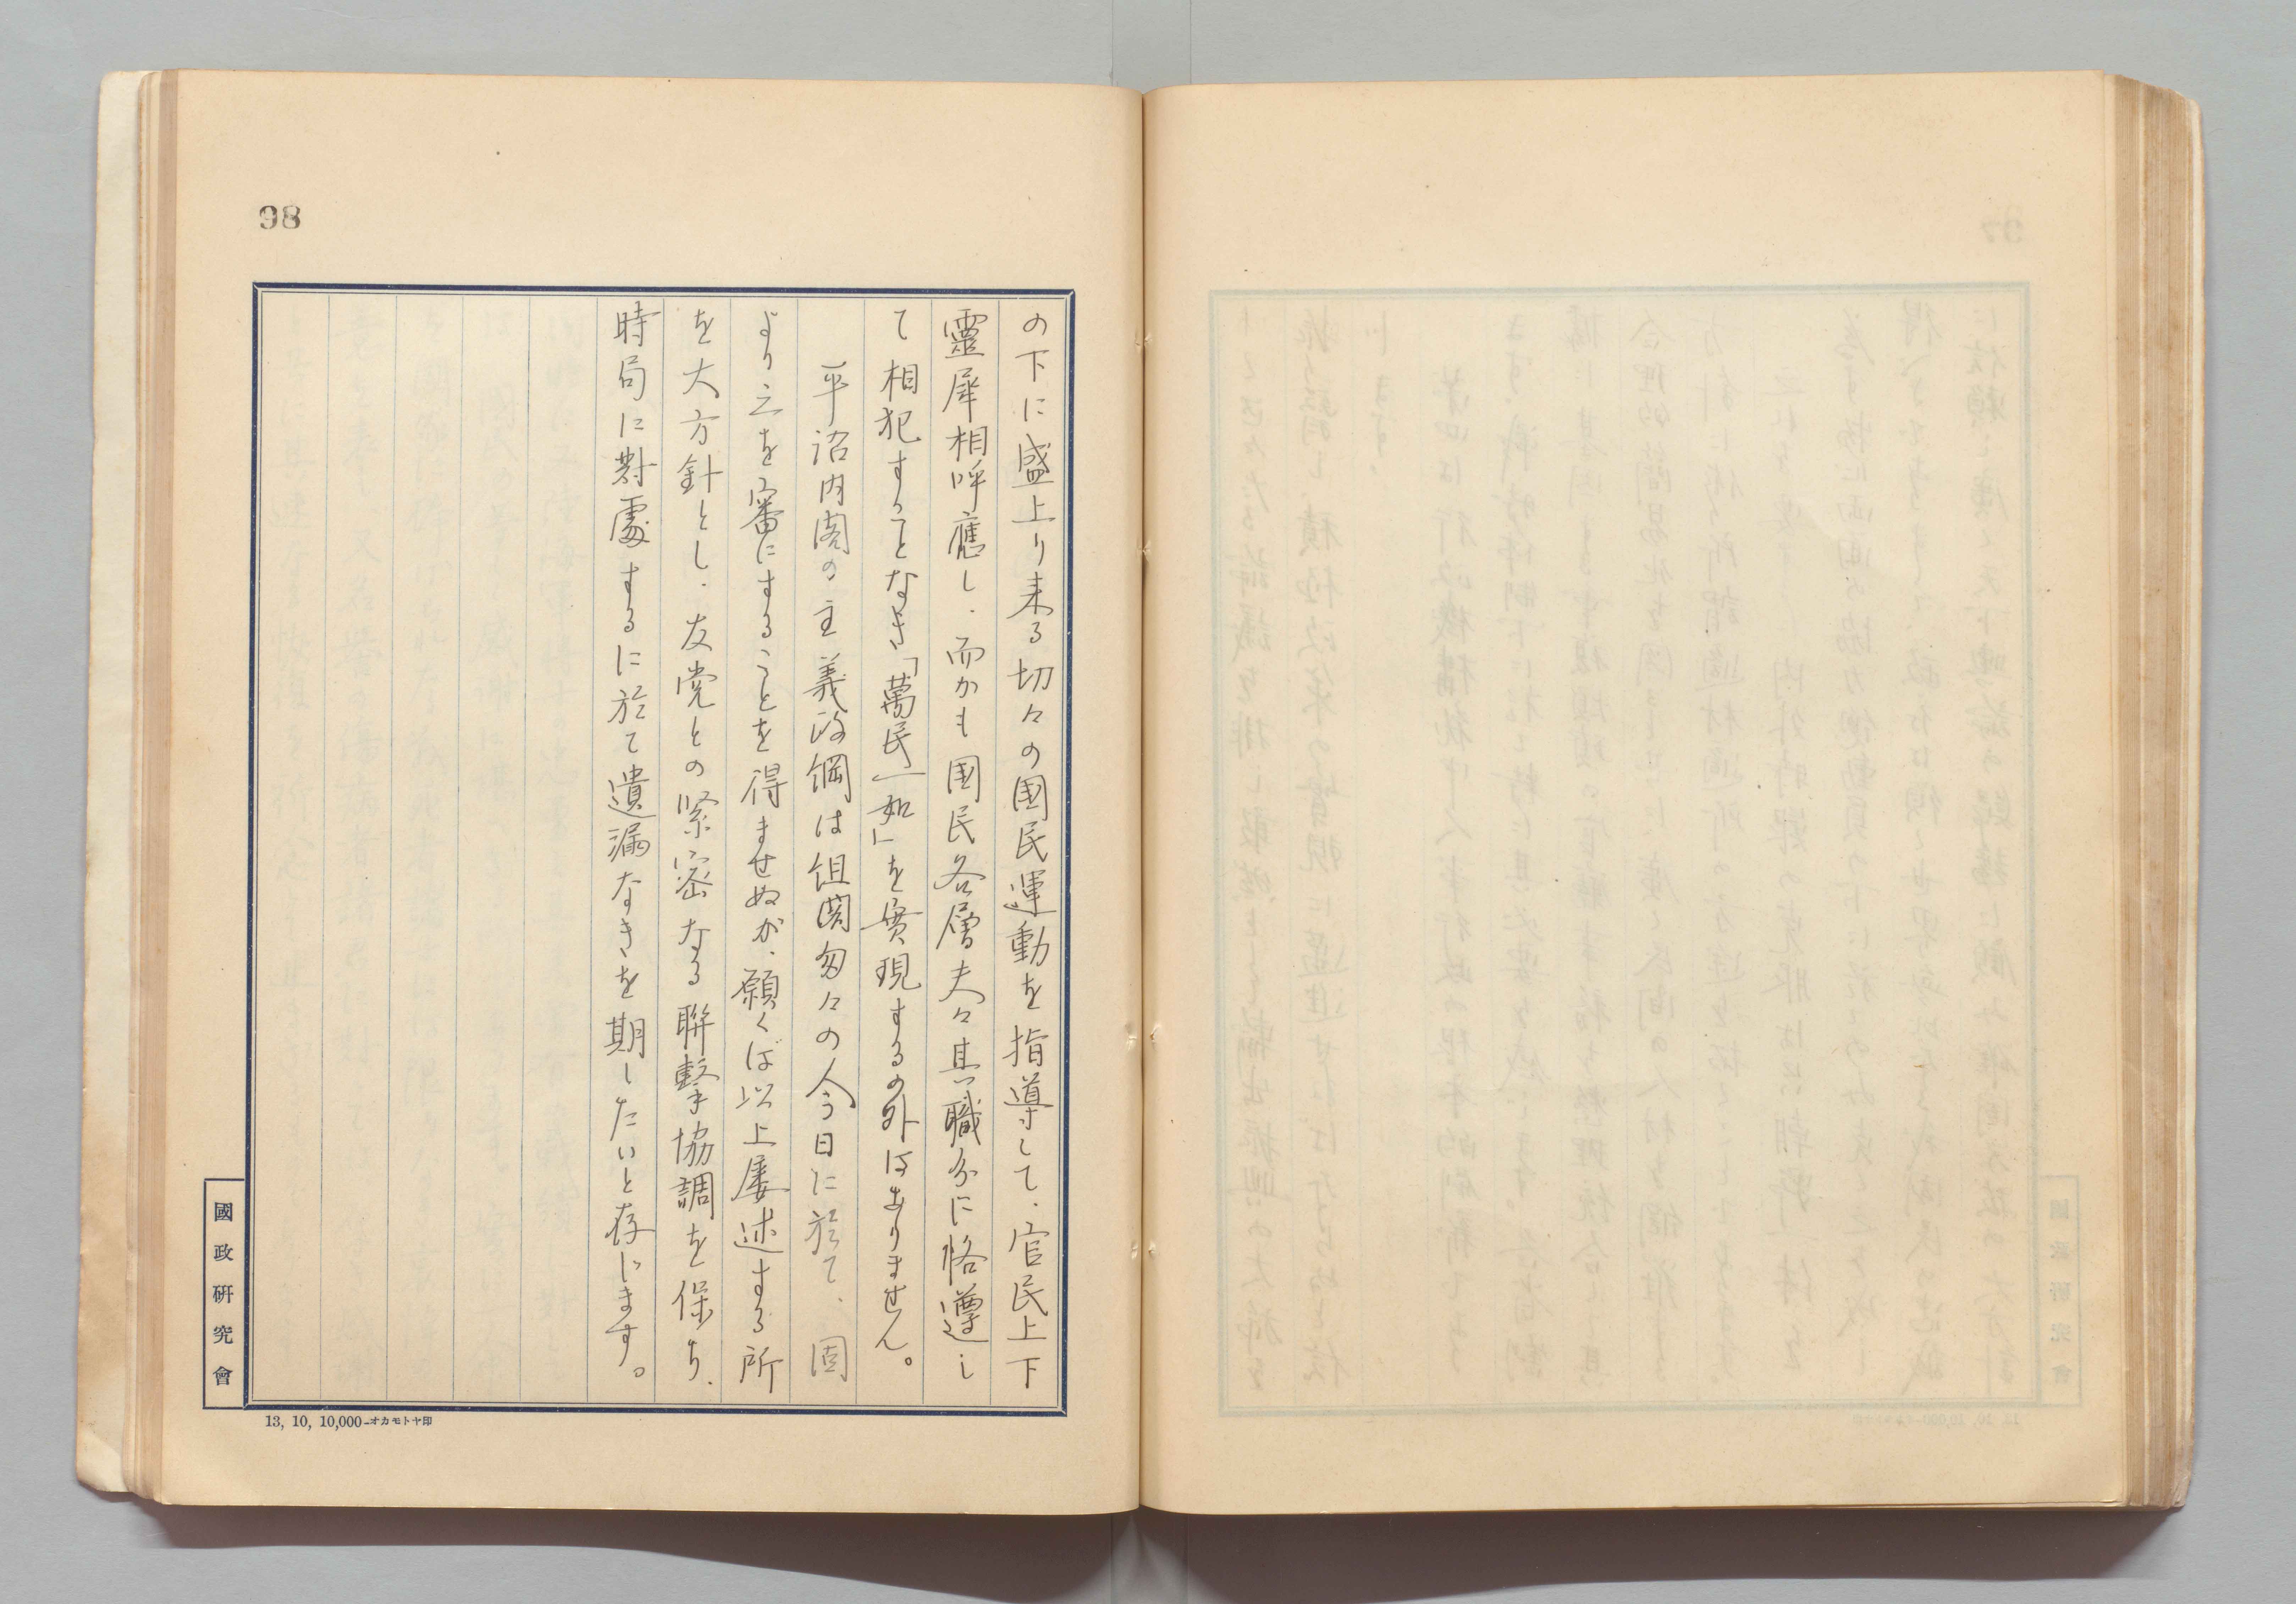 98
の下に盛上り来る切々の国民運動を指導して、官民上下
靈犀相呼應し、而かも国民各層夫々其職分に恪遵し
て相犯すことなき「萬民一如」を實現するの外はありません。
平沼内閣の主義政綱は組閣匆々の今日に於て、固
より之を審にすることを得ませぬが、願くば以上屡述する所
を大方針とし、友党との緊密なる聯撃協調を保ち、
時局に對處するに於て遺漏なきを期したいと存じます。
國政研究會
13, 10, 10,000-オカモトヤ印